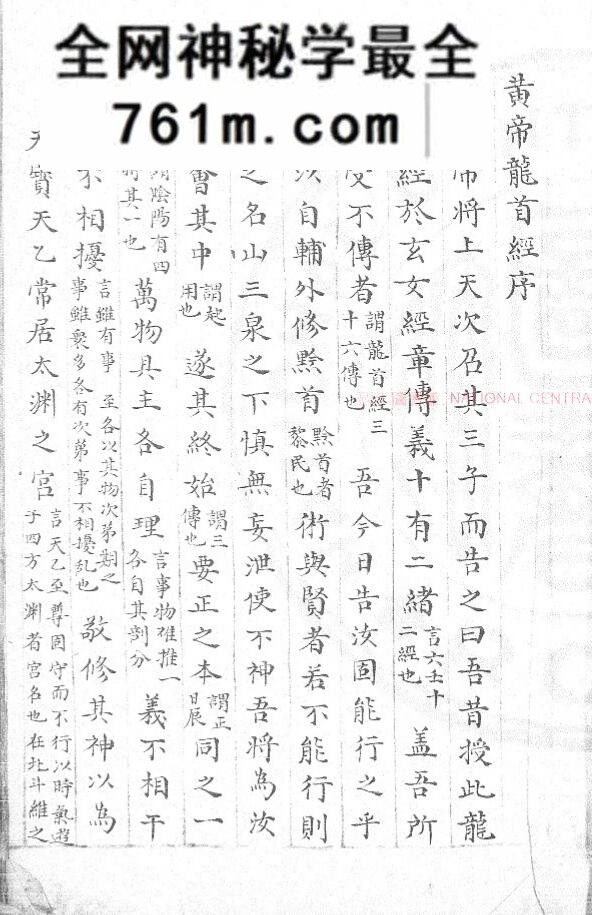 全网神秘学最全
761m.com
黄帝龍首經序
帝將上天次召其三子而告之曰吾昔授此龍
經於玄女經章傳義十有二緒言六壬十二經也盖吾所
受不傳者謂龍首經三十六傳也吾今日告汝固能行之乎
自輔外修黔首黔首者黎民也術與賢者若不能行則
之名山三泉之下慎無妄泄使不神吾將為汝
會其中謂起用也遂其終始謂三傳也要正之本謂正日辰同之一
謂陰陽有四時其一也萬物具主各自理言事物雖推一各自其剖分義不相干
不相擾言雖有事至各以其物次第期之事雖衆多各有次第事不相擾乱也敬修其神以為
寳天乙常居太渊之宫言天乙至尊固守而不行以時氣遊于四方太渊者宫名也在北斗維之
NATIONAL CENTRA